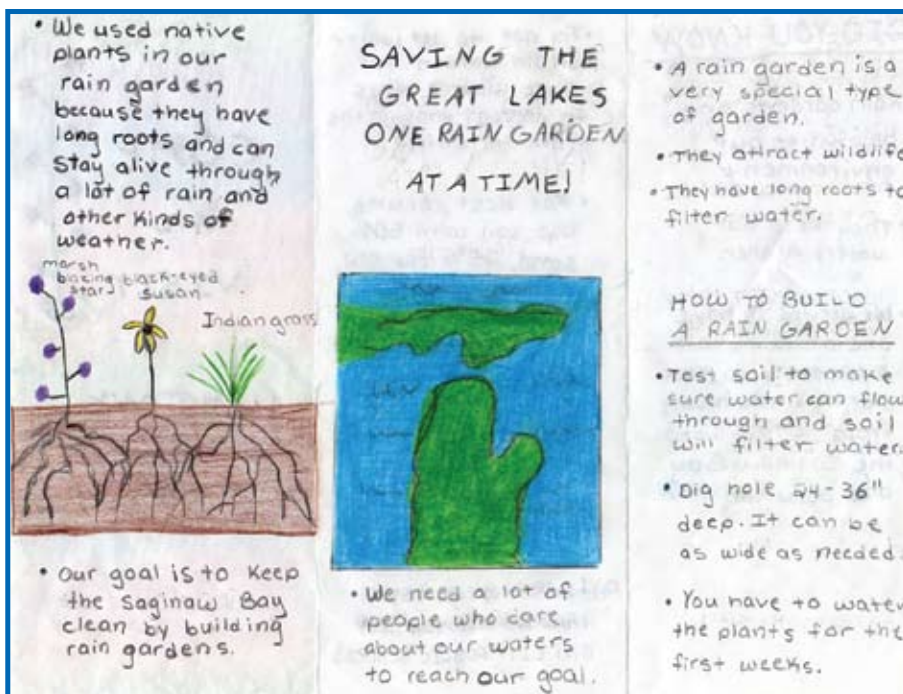 • We used native
plants in our
rain garden
because they have
long roots and can
stay alive through
a lot of rain and
other kinds of
weather.
marsh
blazing
star
black-eyed
susan
Indiangrass
• Our goal is to keep
the Saginaw Bay
clean by building
rain gardens.
SAVING THE
GREAT LAKES
ONE RAIN GARDEN
AT A TIME!
• We need a lot of
people who care
about our waters
to reach our goal.
• A rain garden is a
very special type
of garden.
• They attract wildlife
• They have long roots to
filter water.
HOW TO BUILD
A RAIN GARDEN
• Test soil to make
sure water can flow
through and soil
will filter water.
• Dig hole 24-36"
deep. It can be
as wide as needed.
• You have to water
the plants for the
first weeks.